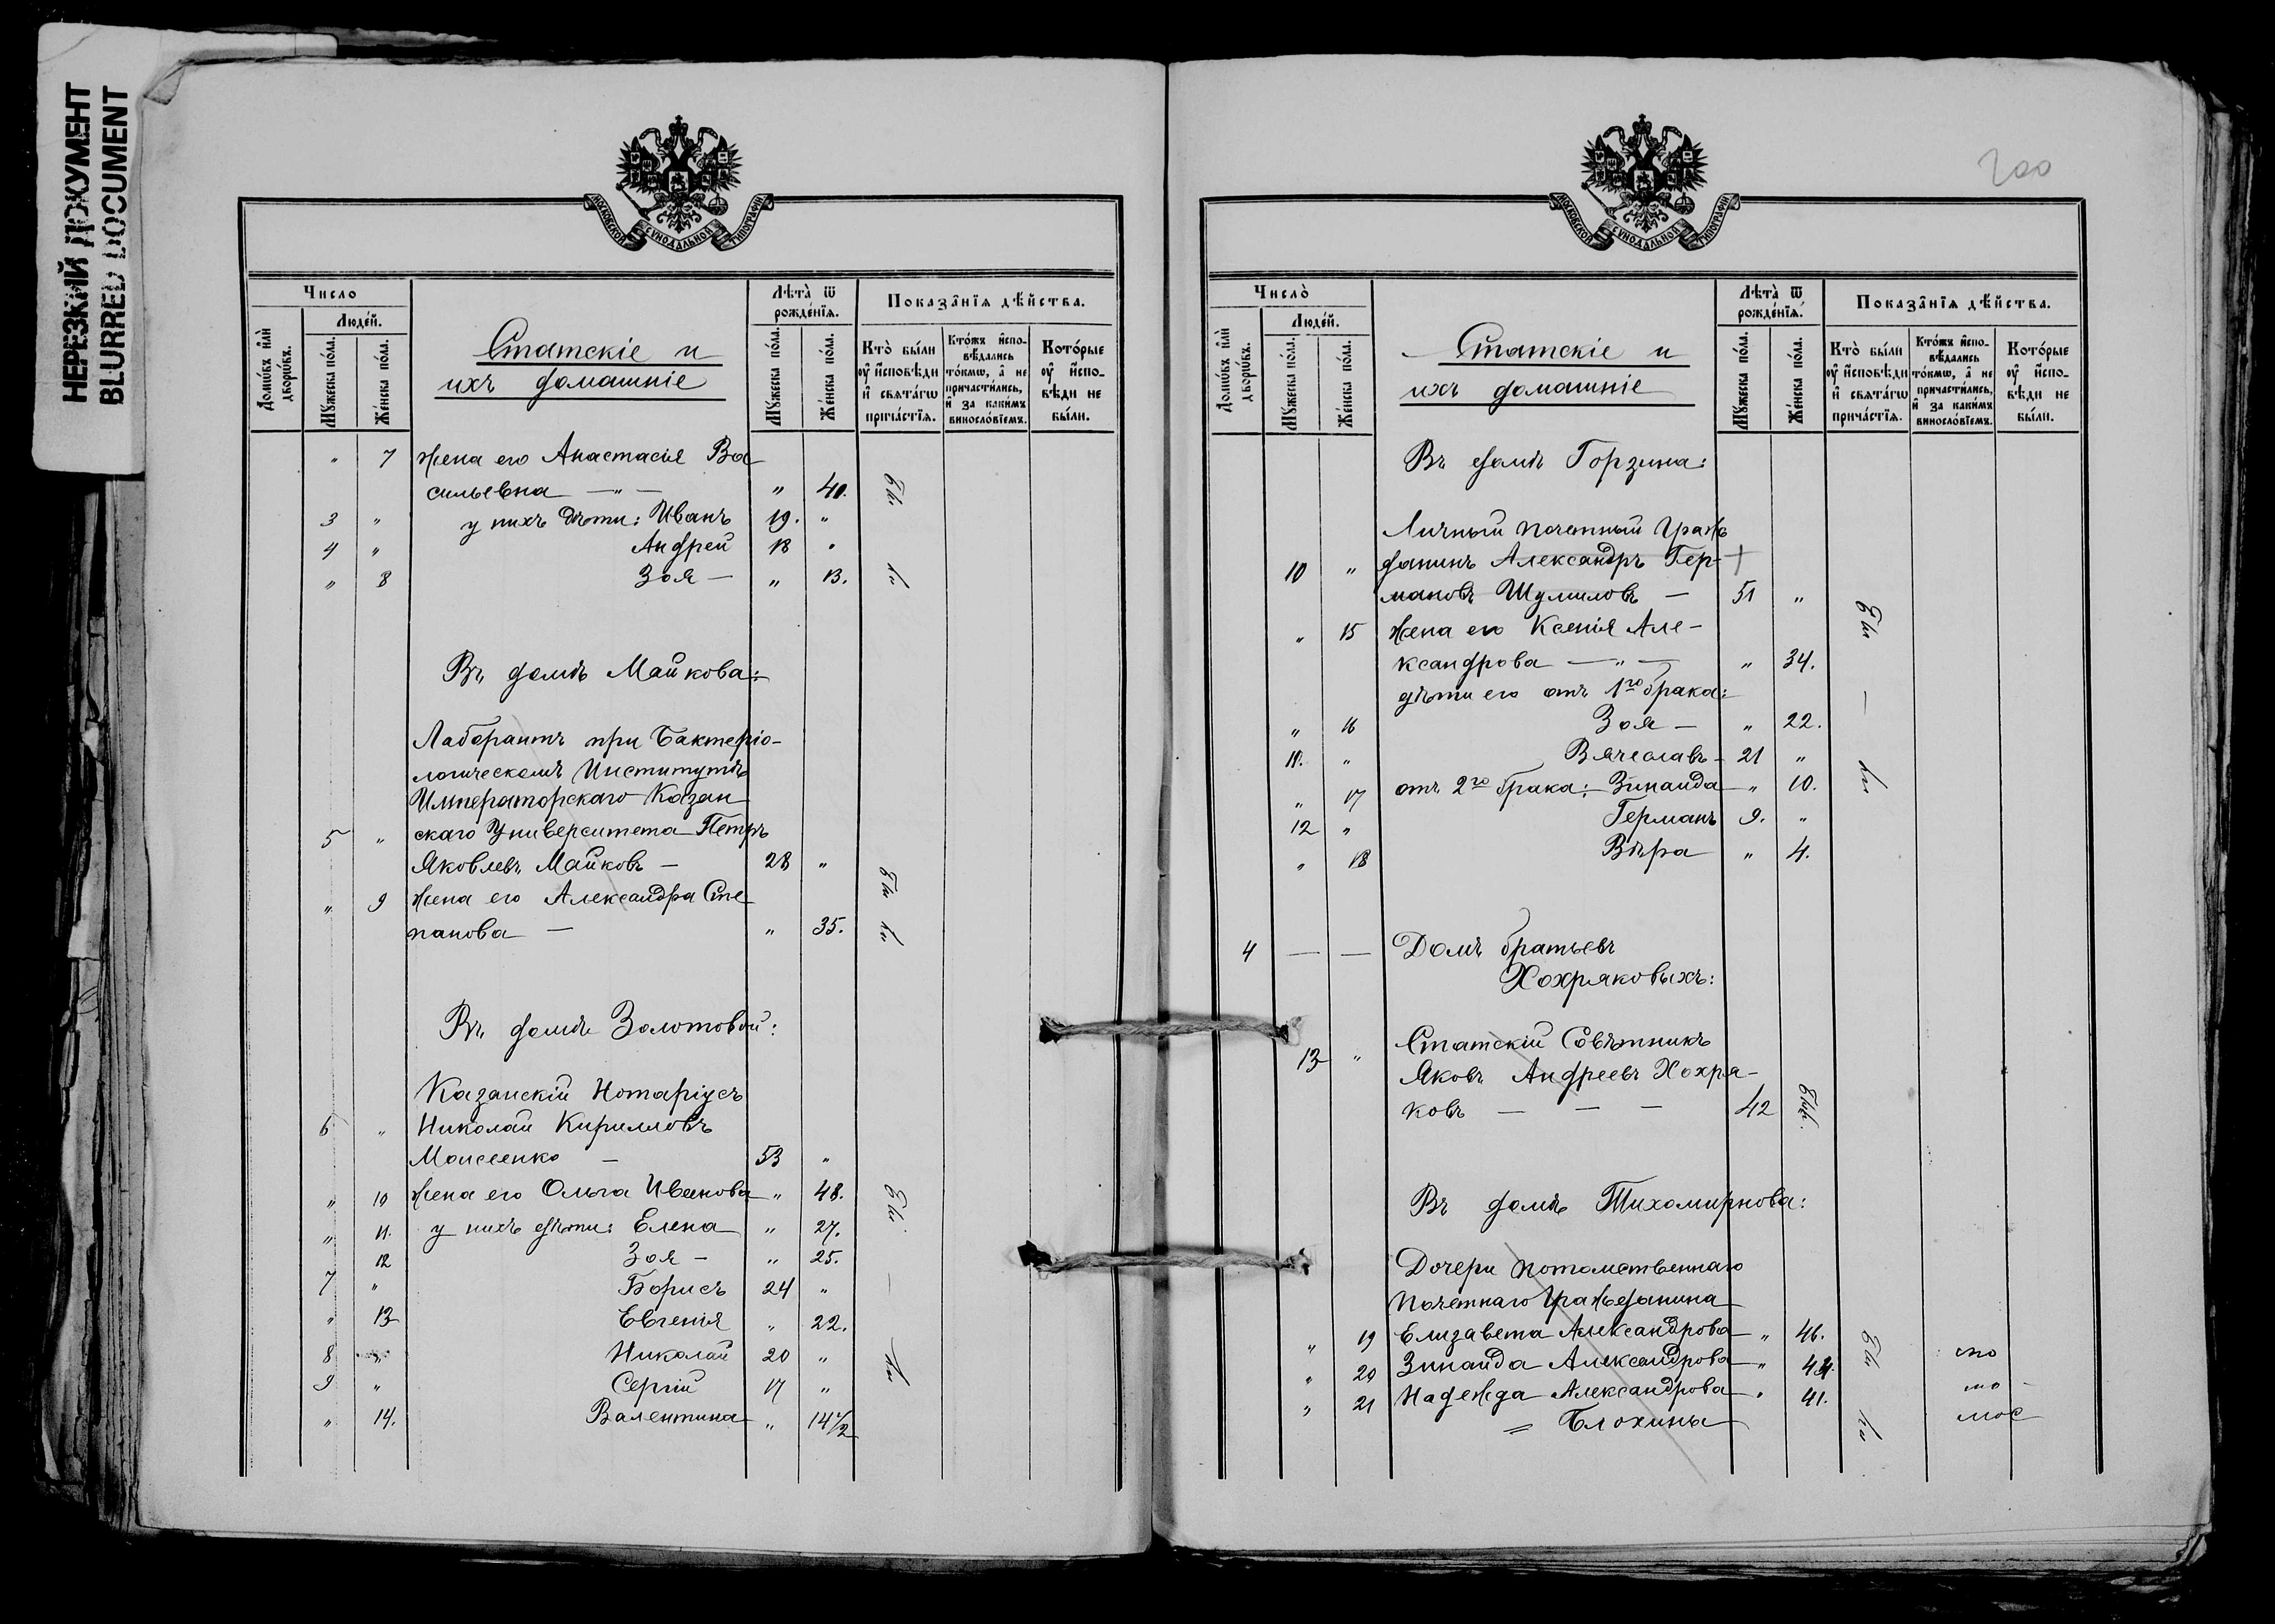 НЕРЕЗКИЙ ДОКУМЕНТ
BLURRED DOCUMENT
МОСКОВСКОЙ СѴНОДАЛЬНОЙ ТИПОГРАФІИ
Число
Людей.
Домѡвъ или дворѡвъ.
Мужеска пола.
Женска пола.
Статскіе и
ихъ домашніе
Лѣта ѿ рожденїѧ.
Мужеска пола.
Женска пола.
Показанїѧ дѣйства.
Кто были оу исповѣди и свѧтагѡ причастїѧ.
Ктожъ исповѣдались токмѡ, а не причастились, и за какимъ винословїемъ.
Которые оу исповѣди не были.
" 7 Жена его Анастасія Ва
сильевна — " — " 40. Бы
3 " у нихъ дѣти: Иванъ 19. "
4 " Андрей 18 "
" 8 Зоя — " 13. ли
Въ домѣ Майкова:
Лаборантъ при Бактеріо-
логическомъ Институтѣ
Императорскаго Казан
5 " скаго Университета Петръ
Яковлевъ Майковъ — 28 "
" 9 Жена его Александра Сте
панова — " 35. Бы ли
Въ домѣ Золотовой:
Казанскій Нотаріусъ
6 " Николай Кирилловъ
Моисеенко — 53 "
" 10 Жена его Ольга Иванова " 48. Бы
" 11. у нихъ дѣти: Елена " 27.
12 Зоя — " 25.
7 " Борисъ 24 " —
" 13 Евгенія " 22.
8 " Николай 20 " ли
9 " Сергій 17 "
" 14. Валентина " 14 1/2
200
МОСКОВСКОЙ СѴНОДАЛЬНОЙ ТИПОГРАФІИ
Число
Людей.
Домѡвъ или дворѡвъ.
Мужеска пола.
Женска пола.
Статскіе и
ихъ домашніе
Лѣта ѿ рожденїѧ.
Мужеска пола.
Женска пола.
Показанїѧ дѣйства.
Кто были оу исповѣди и свѧтагѡ причастїѧ.
Ктожъ исповѣдались токмѡ, а не причастились, и за какимъ винословїемъ.
Которые оу исповѣди не были.
Въ домѣ Горзина:
Личный почетный Граж
10 " данинъ Александръ Гер- +
мановъ Шумиловъ — 51 "
" 15 Жена его Ксенія Але- Бы
ксандрова — " — " 34.
дѣти его отъ 1го брака: —
" 16 Зоя — " 22.
11. " Вячеславъ - 21 "
" 17 отъ 2го брака: Зинаида " 10. ли
12 " Германъ 9. "
" 18 Вѣра " 4.
4 — — Домъ братьевъ
Хохряковыхъ:
Статскій Совѣтникъ
13 " Яковъ Андреевъ Хохря-
ковъ — — — 42 Былъ.
Въ домѣ Тихомирнова:
Дочери потомственнаго
Почетнаго Гражданина
" 19 Елизавета Александрова " 46. Бы
" 20 Зинаида Александрова "
" 21 Надежда Александрова " 41.
= Блохины ли